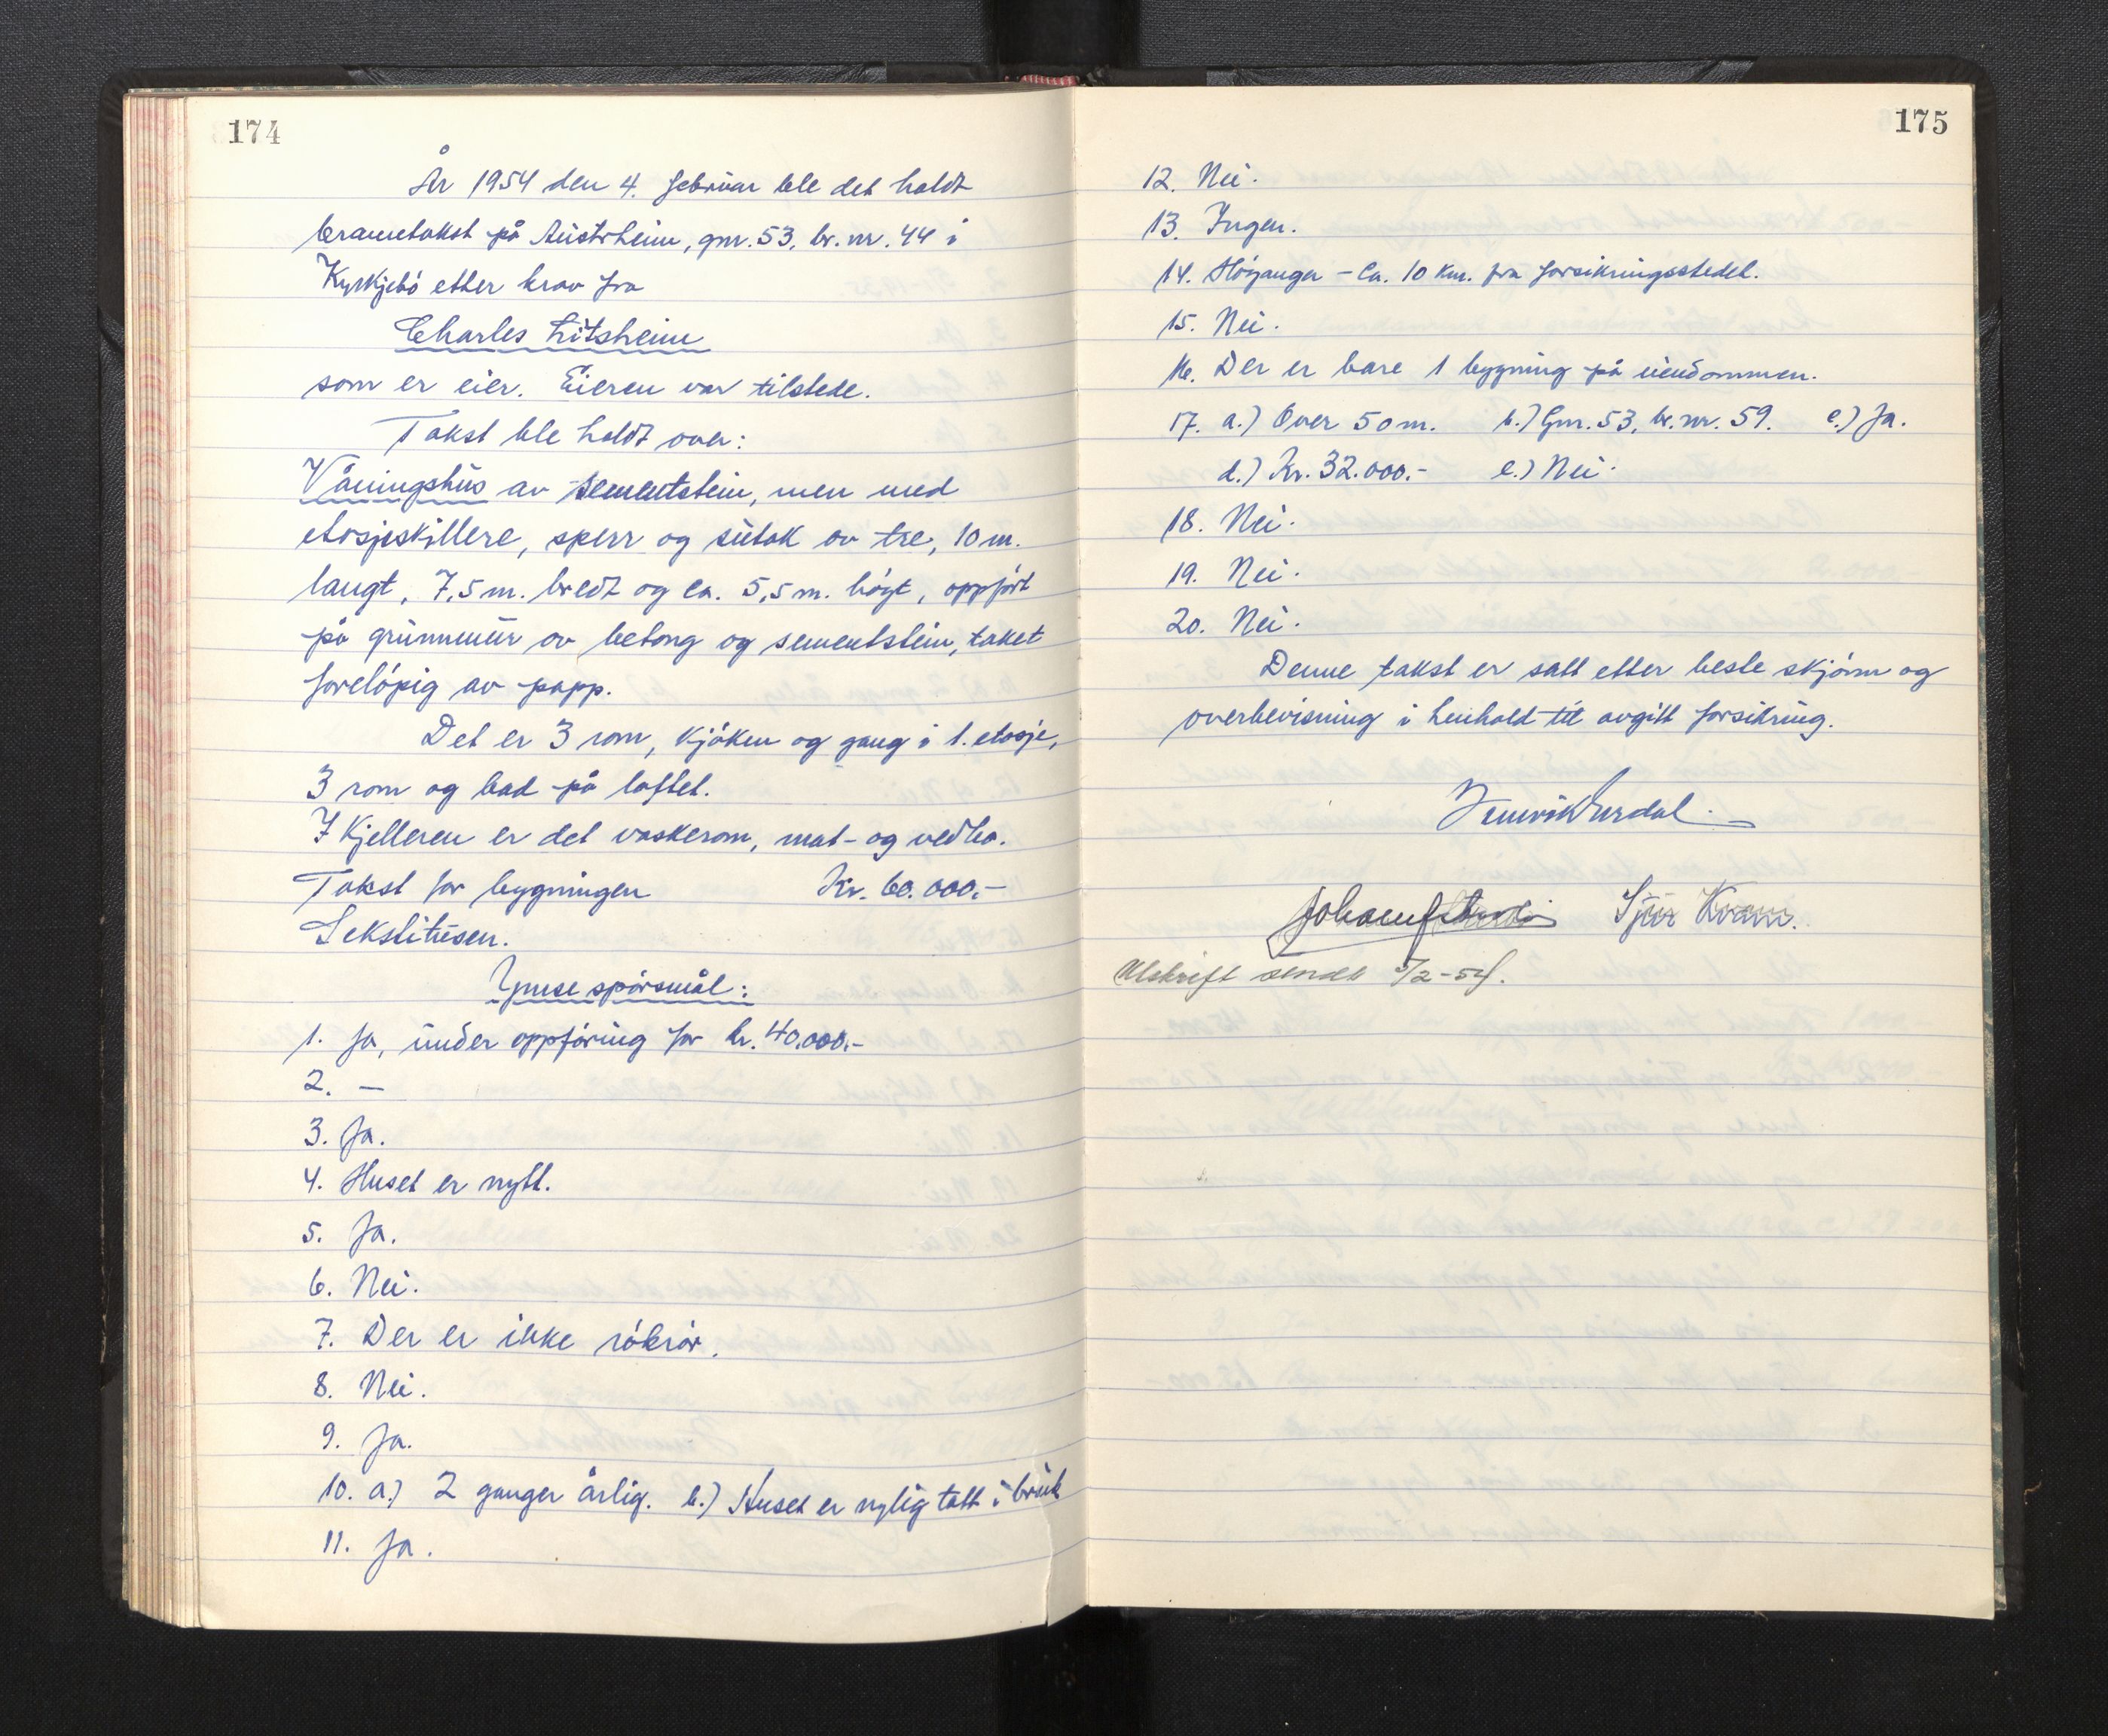 174
År 1954 den 4. februar ble det holdt
branntakst på Austrheim, gnr. 53, br. nr. 44 i
Kyrkjebø etter krav fra
Charles Litsheim
som er eier. Eieren var tilstede.
Takst ble holdt over:
Våningshus av sementstein, men med
etasjeskillere, sperr og sutak av tre, 10 m.
langt, 7,5 m. bredt og ca. 5,5 m. høgt, oppført
på grunnmur av betong og sementstein, taket
foreløpig av papp.
Det er 3 rom, kjøken og gang i 1. etasje,
3 rom og bad på loftet.
I kjelleren er det vaskerom, mat- og vedbo.
Takst for bygningen Kr. 60.000.-
Sekstitusen.
Ymse spørsmål:
1. Ja, under oppføring for kr. 40.000.-
2. —
3. Ja.
4. Huset er nytt.
5. Ja.
6. Nei.
7. Der er ikke rökrör.
8. Nei.
9. Ja.
10. a.) 2 ganger årlig. b.) Huset er nylig tatt i bruk
11. Ja.
175
12. Nei.
13. Ingen.
14. Høyanger – Ca. 10 km. fra forsikringsstedet.
15. Nei.
16. Der er bare 1 bygning på eiendommen.
17. a.) Over 50 m. b.) Gnr. 53, br. nr. 59. c.) Ja.
d.) Kr. 32.000.- e.) Nei.
18. Nei.
19. Nei.
20. Nei.
Denne takst er satt etter beste skjønn og
overbevisning i henhold til avgitt forsikring.
Sjur Kvam.
Utskrift sendt 5/2-54.